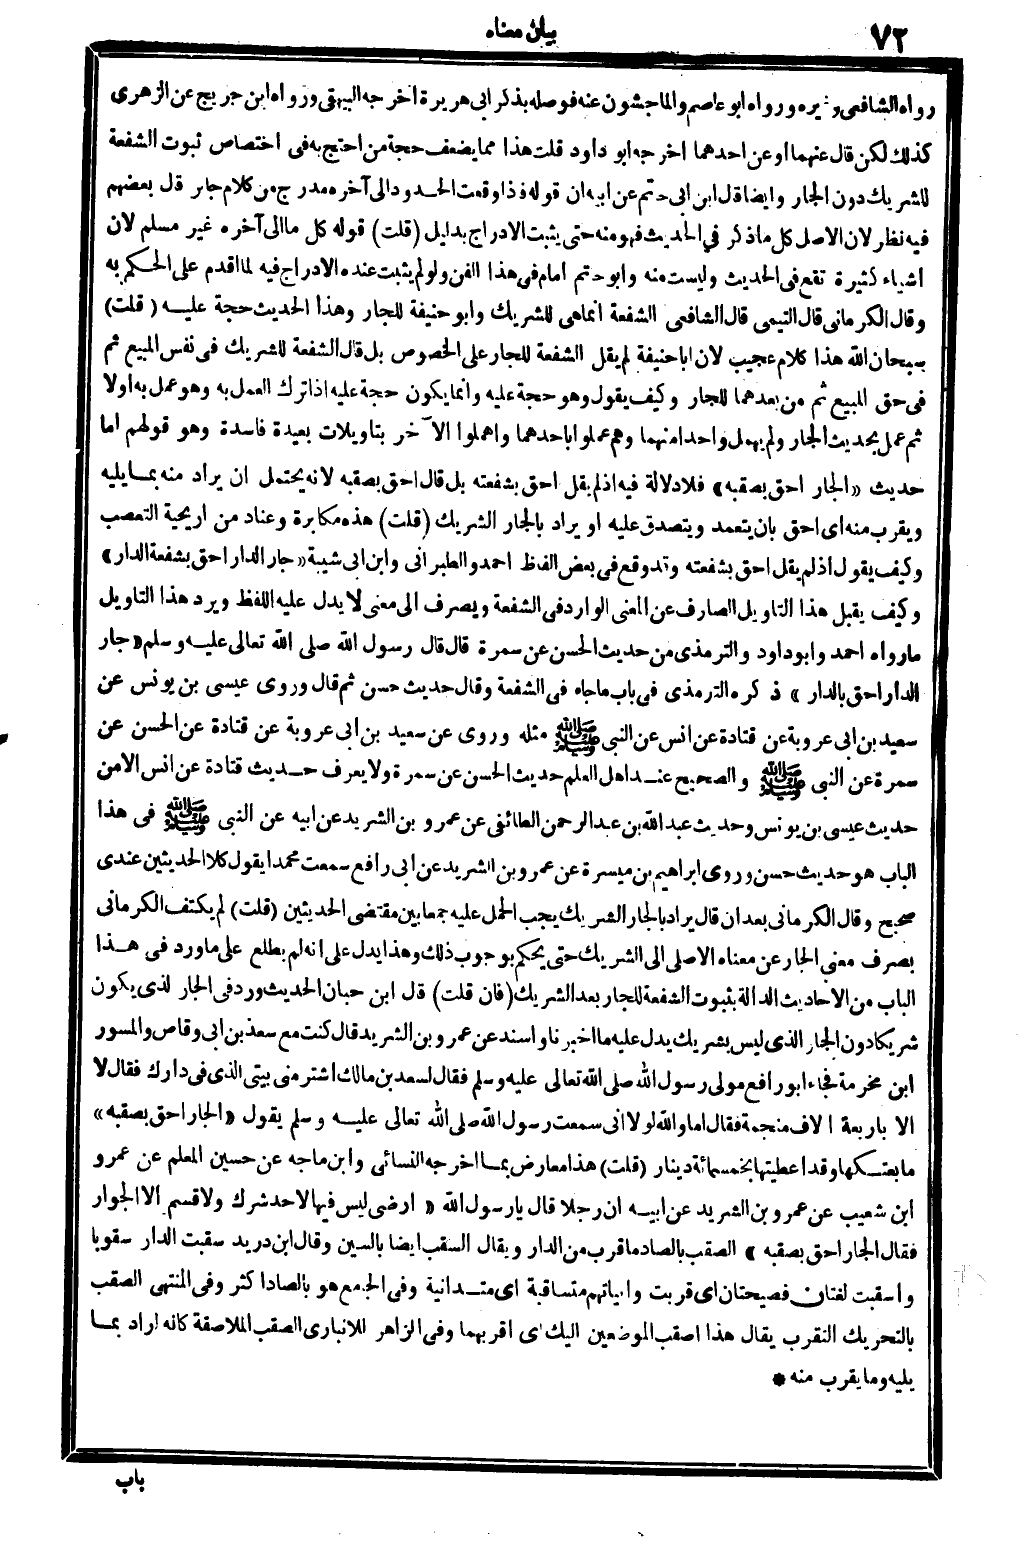 ٧٢
بيان معناه
رواه الشافعي وغيره ورواه ابو عاصم والماجشون عنه فوصله بذكر ابي هريرة اخرجه البيهقي ورواه ابن جريج عن الزهري
كذلك لكن قال عنهما او عن احدهما اخرجه ابو داود قلت هذا مما يضعف حجة من احتج به في اختصاص ثبوت الشفعة
للشريك دون الجار وايضا قال ابن ابي حاتم عن ابيه ان قوله فاذا وقعت الحدود الى آخره مدرج من كلام جابر قال بعضهم
فيه نظر لان الاصل كل ما ذكر في الحديث فهو منه حتى يثبت الادراج بدليل (قلت) قوله كل ما الى آخره غير مسلم لان
اشياء كثيرة تقع في الحديث وليست منه وابو حاتم امام في هذا الفن ولو لم يثبت عنده الادراج فيه لما اقدم على الحكم به
وقال الكرماني قال التيمي قال الشافعي الشفعة انما هي للشريك وابو حنيفة للجار وهذا الحديث حجة عليه (قلت)
سبحان الله هذا كلام عجيب لان ابا حنيفة لم يقل الشفعة للجار على الخصوص بل قال الشفعة للشريك في نفس المبيع ثم
في حق المبيع ثم من بعدهما للجار وكيف يقول وهو حجة عليه وانما يكون حجة عليه اذا ترك العمل به وهو عمل به اولا
ثم عمل بحديث الجار ولم يهمل واحدا منهما وهم عملوا باحدهما واهملوا الآخر بتاويلات بعيدة فاسدة وهو قولهم اما
حديث «الجار احق بصقبه» فلا دلالة فيه اذ لم يقل احق بشفعته بل قال احق بصقبه لانه يحتمل ان يراد منه بما يليه
ويقرب منه اى احق بان يتعهد ويتصدق عليه او يراد بالجار الشريك (قلت) هذه مكابرة وعناد من اريحية التعصب
وكيف يقول اذ لم يقل احق بشفعته وقد وقع في بعض الفاظ احمد والطبراني وابن ابي شيبة «جار الدار احق بشفعة الدار»
وكيف يقبل هذا التاويل الصارف عن المعنى الوارد في الشفعة ويصرف الى معنى لا يدل عليه اللفظ ويرد هذا التاويل
مارواه احمد وابو داود والترمذي من حديث الحسن عن سمرة قال قال رسول الله صلى الله تعالى عليه وسلم «جار
الدار احق بالدار» ذكره الترمذي في باب ما جاء في الشفعة وقال حديث حسن ثم قال وروى عيسى بن يونس عن
سعيد بن ابي عروبة عن قتادة عن انس عن النبي ﷺ مثله وروى عن سعيد بن ابي عروبة عن قتادة عن الحسن عن
سمرة عن النبي ﷺ والصحيح عند اهل العلم حديث الحسن عن سمرة ولا يعرف حديث قتادة عن انس الا من
حديث عيسى بن يونس وحديث عبد الله بن عبد الرحمن الطائفي عن عمرو بن الشريد عن ابيه عن النبي ﷺ في هذا
الباب هو حديث حسن وروى ابراهيم بن ميسرة عن عمرو بن الشريد عن ابي رافع سمعت محمدا يقول كلا الحديثين عندي
صحيح وقال الكرماني بعد ان قال يراد بالجار الشريك يجب الحمل عليه جمعا بين مقتضى الحديثين (قلت) لم يكتف الكرماني
بصرف معنى الجار عن معناه الاصلي الى الشريك حتى يحكم بوجوب ذلك وهذا يدل على انه لم يطلع على ماورد في هذا
الباب من الاحاديث الدالة بثبوت الشفعة للجار بعد الشريك (فان قلت) قال ابن حبان الحديث ورد في الجار الذي يكون
شريكا دون الجار الذي ليس بشريك يدل عليه ما اخبرنا واسند عن عمرو بن الشريد قال كنت مع سعد بن ابي وقاص والمسور
ابن مخرمة فجاء ابو رافع مولى رسول الله صلى الله تعالى عليه وسلم فقال لسعد بن مالك اشتر مني بيتي الذي في دارك فقال لا
الا باربعة آلاف منجمة فقال اما والله لولا اني سمعت رسول الله صلى الله تعالى عليه وسلم يقول «الجار احق بصقبه»
ما بعتكها وقد اعطيتها بخمسمائة دينار (قلت) هذا معارض بما اخرجه النسائي وابن ماجه عن حسين المعلم عن عمرو
ابن شعيب عن عمرو بن الشريد عن ابيه ان رجلا قال يارسول الله «ارضي ليس فيها لاحد شرك ولا قسم الا الجوار
فقال الجار احق بصقبه» الصقب بالصاد ما قرب من الدار ويقال السقب ايضا بالسين وقال ابن دريد سقبت الدار سقوبا
واسقبت لغتان فصيحتان اى قربت وابياتهم متساقبة اى متدانية وفي الجامع هو بالصاد اكثر وفي المنتهى الصقب
بالتحريك القرب يقال هذا اصقب الموضعين اليك اى اقربهما وفي الزاهر للانباري الصقب الملاصقة كانه اراد بما
يليه وما يقرب منه *
باب